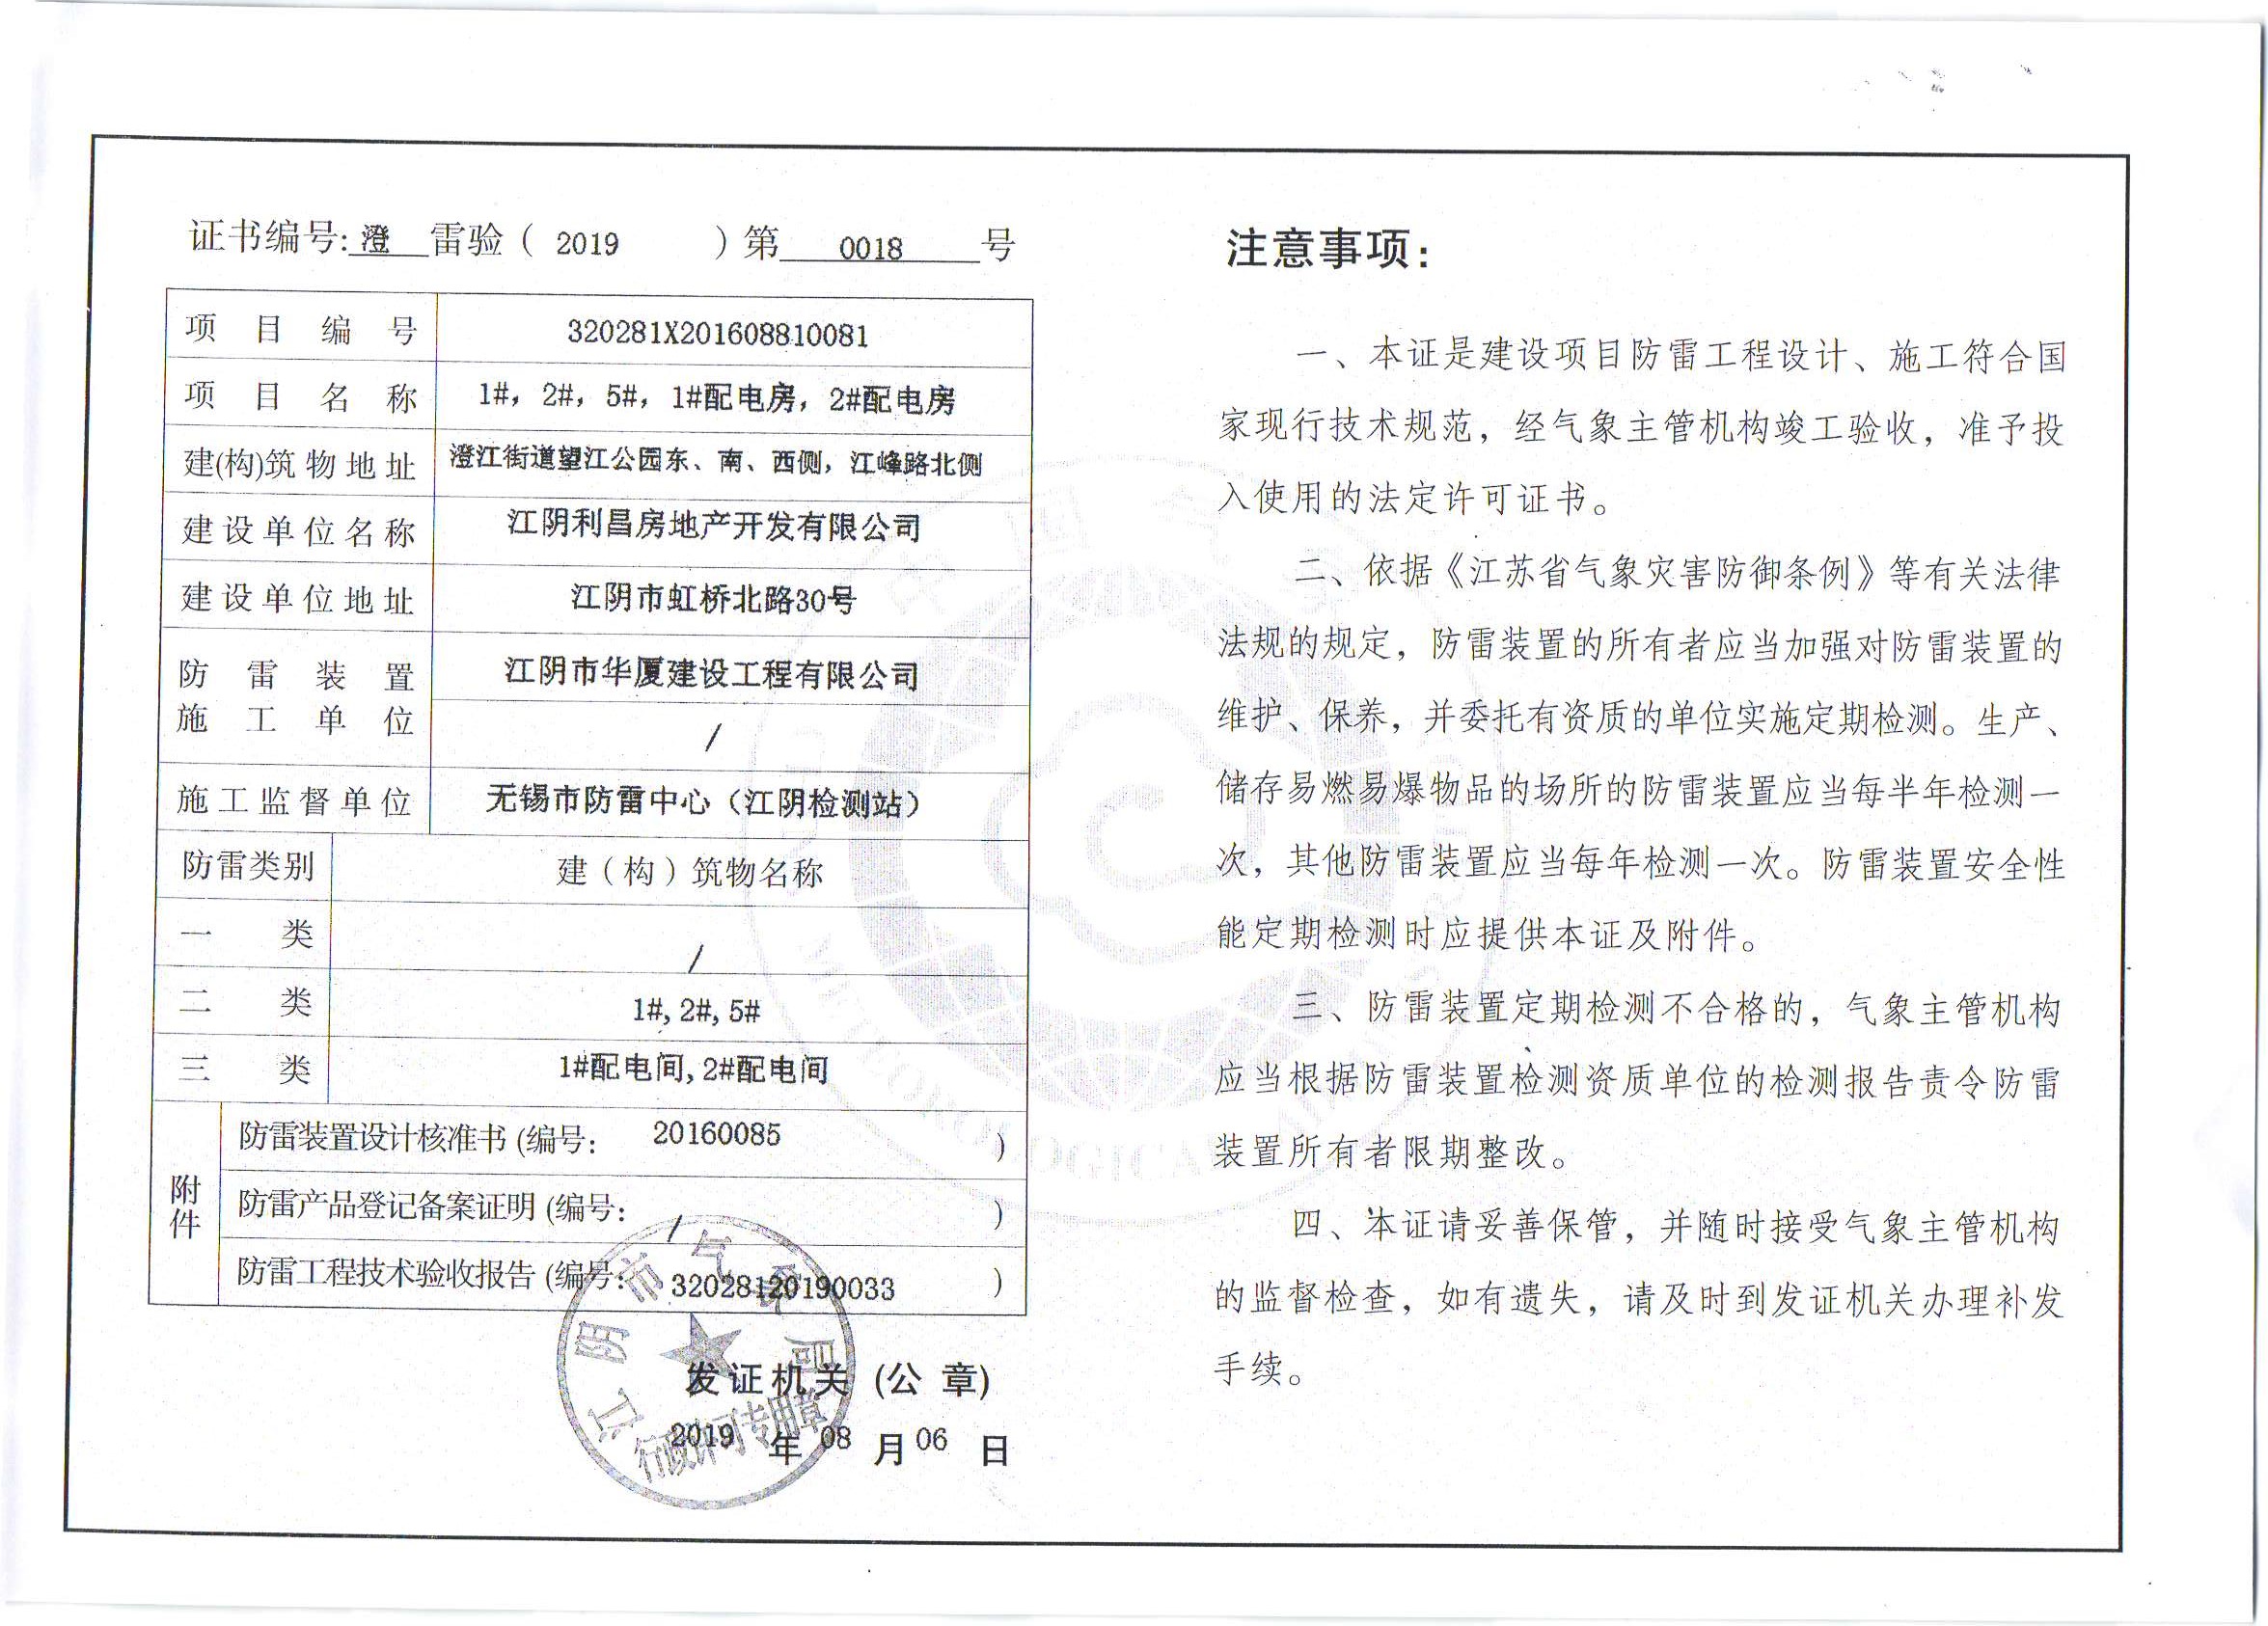 证书编号:澄 雷验（ 2019 ）第 0018 号
项目编号 320281X201608810081
项目名称 1#，2#，5#，1#配电房，2#配电房
建(构)筑物地址 澄江街道望江公园东、南、西侧，江峰路北侧
建设单位名称 江阴利昌房地产开发有限公司
建设单位地址 江阴市虹桥北路30号
防雷装置施工单位 江阴市华厦建设工程有限公司
/
施工监督单位 无锡市防雷中心（江阴检测站）
防雷类别 建（构）筑物名称
一类 /
二类 1#,2#,5#
三类 1#配电间,2#配电间
附件
防雷装置设计核准书 (编号： 20160085 )
防雷产品登记备案证明 (编号： / )
防雷工程技术验收报告 (编号： 32028120190033 )
江阴市气象局
行政许可专用章
发证机关 (公 章)
2019 年 08 月 06 日
注意事项：
一、本证是建设项目防雷工程设计、施工符合国
家现行技术规范，经气象主管机构竣工验收，准予投
入使用的法定许可证书。
二、依据《江苏省气象灾害防御条例》等有关法律
法规的规定，防雷装置的所有者应当加强对防雷装置的
维护、保养，并委托有资质的单位实施定期检测。生产、
储存易燃易爆物品的场所的防雷装置应当每半年检测一
次，其他防雷装置应当每年检测一次。防雷装置安全性
能定期检测时应提供本证及附件。
三、防雷装置定期检测不合格的，气象主管机构
应当根据防雷装置检测资质单位的检测报告责令防雷
装置所有者限期整改。
四、本证请妥善保管，并随时接受气象主管机构
的监督检查，如有遗失，请及时到发证机关办理补发
手续。